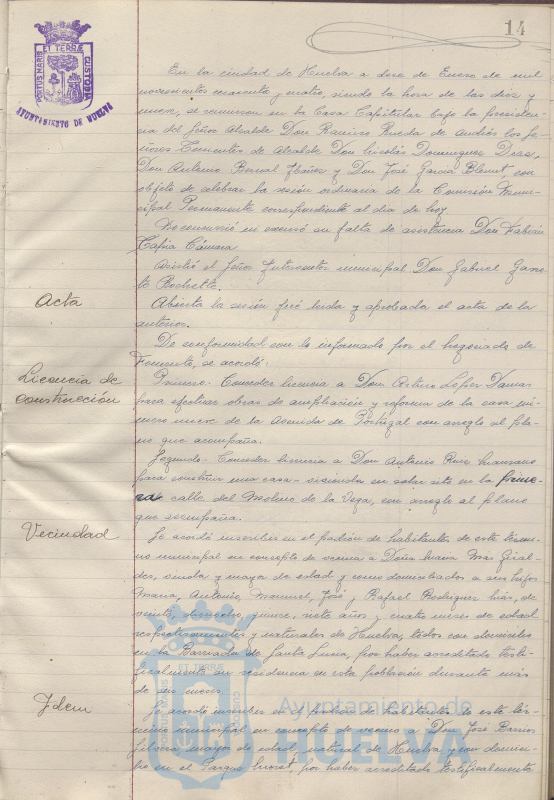 14
PORTUS MARIS ET TERRÆ CUSTODIA
AYUNTAMIENTO DE HUELVA
En la ciudad de Huelva a doce de Enero de mil
novecientos cuarenta y cuatro, siendo la hora de las diez y
nueve, se reunieron en la Casa Capitular bajo la presiden-
cia del Señor Alcalde Don Ramiro Rueda de Andrés los Se-
ñores Tenientes de Alcalde Don Nicolás Domínguez Deas,
Don Antonio Bernal Ibáñez y Don José García Blanut, con
objeto de celebrar la sesión ordinaria de la Comisión Muni-
cipal Permanente correspondiente al día de hoy
No concurrió ni excusó su falta de asistencia Don Fabián
Tapia Cámara
Asistió el Señor Interventor municipal Don Gabriel
Acta
Abierta la sesión fué leida y aprobada el acta de la
anterior.
De conformidad con lo informado por el Negociado de
Fomento, se acordó:
Licencia de
construcción
Primero: Conceder licencia a Don Arturo López Damas
para efectuar obras de ampliación y reforma de la casa nú-
mero nueve de la Avenida de Portugal con arreglo al pla-
no que acompaña.
Segundo: Conceder licencia a Don Antonio Ruiz
para construir una casa-vivienda en solar sito en la prime-
ra calle del Molino de la Vega, con arreglo al plano
que acompaña.
Vecindad
Se acordó inscribir en el padrón de habitantes de este térmi-
no municipal en concepto de vecina a Doña Juana Mas Giral-
des, viuda y mayor de edad y como domiciliados a sus hijos
Maria, Antonio, Manuel, José y Rafael Rodríguez Mas, de
veinte, dieciocho, quince, siete años y cuatro meses de edad
respectivamente y naturales de Huelva, todos con domicilio
en la Barriada de Santa Lucia, por haber acreditado testi-
ficalmente su residencia en esta población durante más
de seis meses.
Idem
Se acordó inscribir en el padrón de habitantes de este tér-
mino municipal en concepto de vecino a Don José Barrios
mayor de edad, natural de Huelva y con domici-
lio en el Parque, por haber acreditado testificalmente
ET TERRÆ
Ayuntamiento de
HUELVA